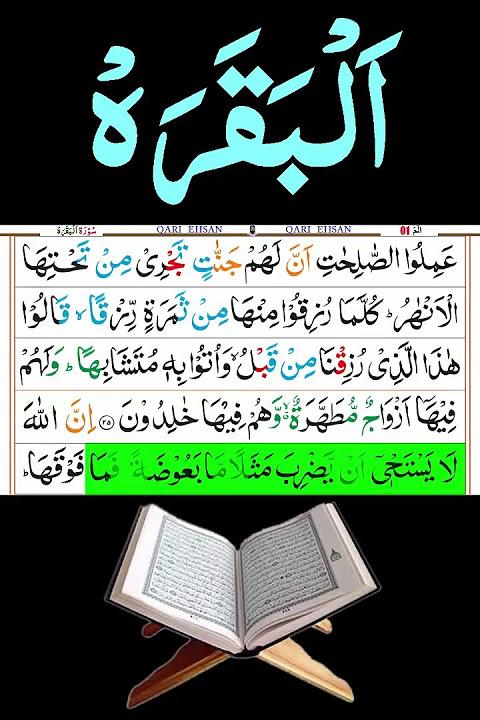 اَلْبَقَرَهْ
سُوْرَةُ الْبَقَرَة QARI EHSAN QARI EHSAN 01 الٓمّٓ
عَمِلُوا الصّٰلِحٰتِ اَنَّ لَهُمْ جَنّٰتٍ تَجْرِیْ مِنْ تَحْتِهَا
الْاَنْهٰرُ ؕ كُلَّمَا رُزِقُوْا مِنْهَا مِنْ ثَمَرَةٍ رِّزْقًا ۙ قَالُوْا
هٰذَا الَّذِیْ رُزِقْنَا مِنْ قَبْلُ ۙ وَاُتُوْا بِهٖ مُتَشَابِهًا ؕ وَلَهُمْ
فِیْهَاۤ اَزْوَاجٌ مُّطَهَّرَةٌ ۙ وَّهُمْ فِیْهَا خٰلِدُوْنَ ﴿۲۵﴾ اِنَّ اللّٰهَ
لَا یَسْتَحْیٖۤ اَنْ یَّضْرِبَ مَثَلًا مَّا بَعُوْضَةً فَمَا فَوْقَهَا ؕ